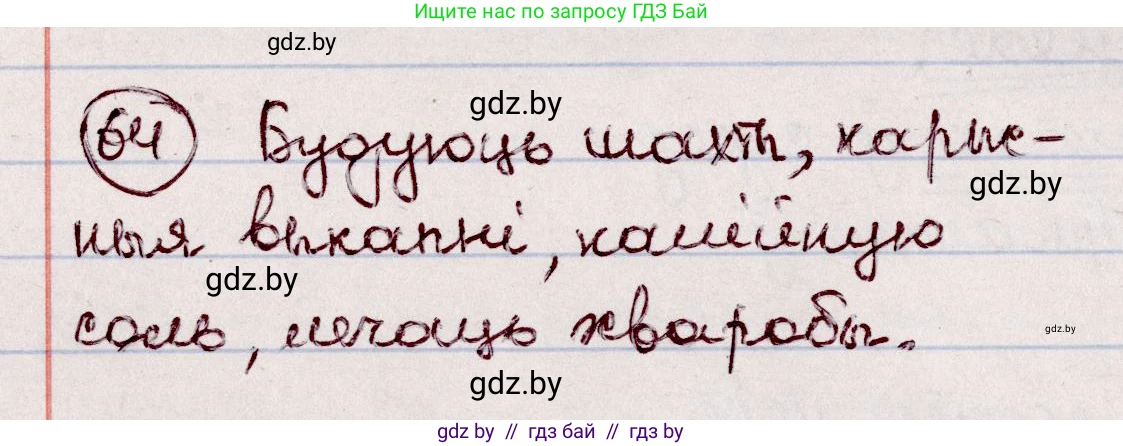 Ищите нас по запросу ГДЗ Бай
gdz.by
gdz.by
64 Будуюць шахты, карыс-
gdz.by
ныя выкапні, каменную
gdz.by
соль, лечаць хваробы.
gdz.by
gdz.by
gdz by // гдз бай // гдз by